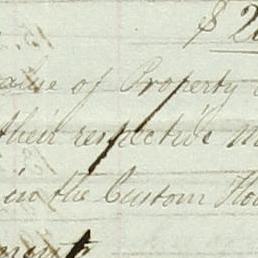 $ 2
alue of Property
their respective
in the Custom Hou